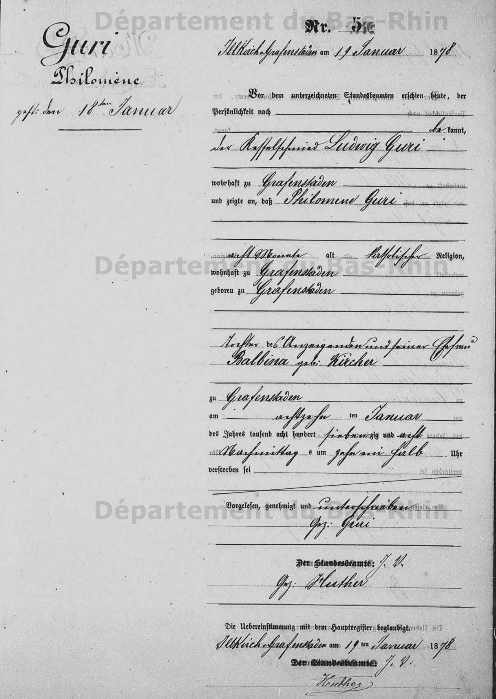 Département du Bas-Rhin
Guri
Philomène
gest: den 18ten Januar
Nr. 5
Illkirch-Grafenstaden am 19 Januar 1878
Vor dem unterzeichneten Standesbeamten erschien heute, der
Persönlichkeit nach
be kannt,
der Kesselschmied Ludwig Guri
wohnhaft zu Grafenstaden
und zeigte an, daß Philomene Guri
acht Monate alt katholischer Religion,
Département du Bas-Rhin
wohnhaft zu Grafenstaden
geboren zu Grafenstaden
Tochter des Anzeigenden und seiner Ehefrau
Balbina geb: Kircher
zu Grafenstaden
am achtzehn ten Januar
des Jahres tausend acht hundert siebenzig und acht
Nachmittag s um zehn ein halb Uhr
verstorben sei
Département du Bas-Rhin
Vorgelesen, genehmigt und unterschrieben
Gez: Guri
Der Standesbeamte: J. V.
Gez: Huther
Die Uebereinstimmung mit dem Hauptregister beglaubigt.
Illkirch-Grafenstaden am 19ten Januar 1878
Der Standesbeamte J. V.
Huther